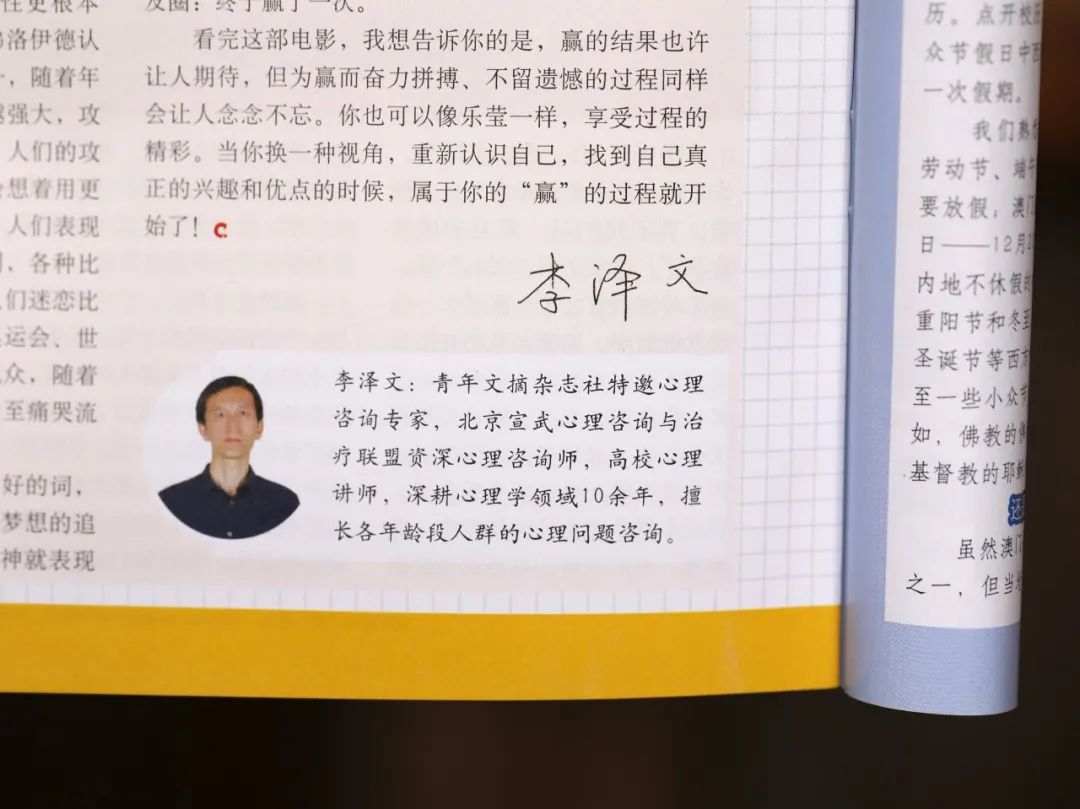 性更根本
弗洛伊德认
，随着年
越强大，攻
人们的攻
会想着用更
人们表现
，各种比
人们迷恋比
奥运会、世
众，随着
至痛哭流
好的词，
梦想的追
神就表现
友圈：终于赢了一次。
看完这部电影，我想告诉你的是，赢的结果也许
让人期待，但为赢而奋力拼搏、不留遗憾的过程同样
会让人念念不忘。你也可以像乐莹一样，享受过程的
精彩。当你换一种视角，重新认识自己，找到自己真
正的兴趣和优点的时候，属于你的“赢”的过程就开
始了！
李泽文
李泽文：青年文摘杂志社特邀心理
咨询专家，北京宣武心理咨询与治
疗联盟资深心理咨询师，高校心理
讲师，深耕心理学领域10余年，擅
长各年龄段人群的心理问题咨询。
历。点开校历
众节假日中西
一次假期。
我们熟
劳动节、端午
要放假，澳门
日——12月2
内地不休假的
重阳节和冬至
圣诞节等西方
至一些小众节
如，佛教的佛
基督教的耶稣
还
虽然澳门
之一，但当